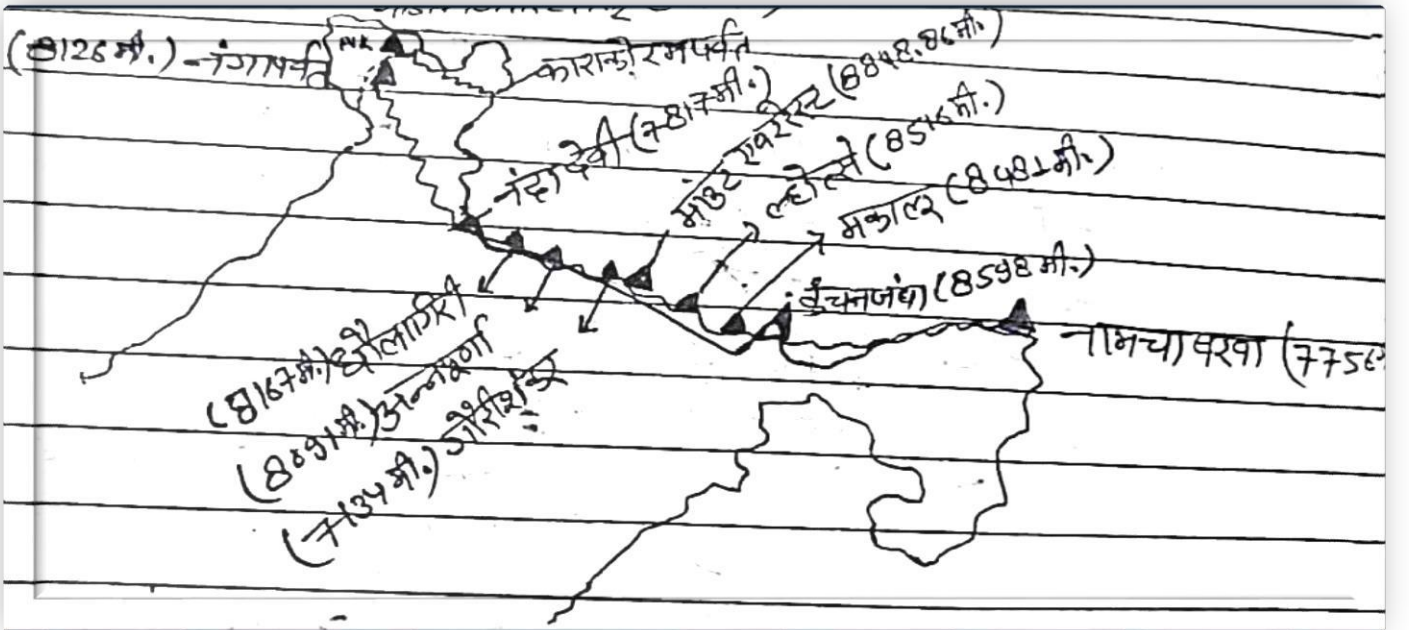 (8126 मी.) नंगापर्वत
काराकोरम पर्वत
नंदा देवी (7817 मी.)
माउंट एवरेस्ट (8848.86 मी.)
ल्होत्से (8516 मी.)
मकालू (8481 मी.)
कंचनजंघा (8598 मी.)
नामचा बरवा (7756
(8167 मी.) धौलागिरी
(8091 मी.) अन्नपूर्णा
(7134 मी.) गौरीशंकर